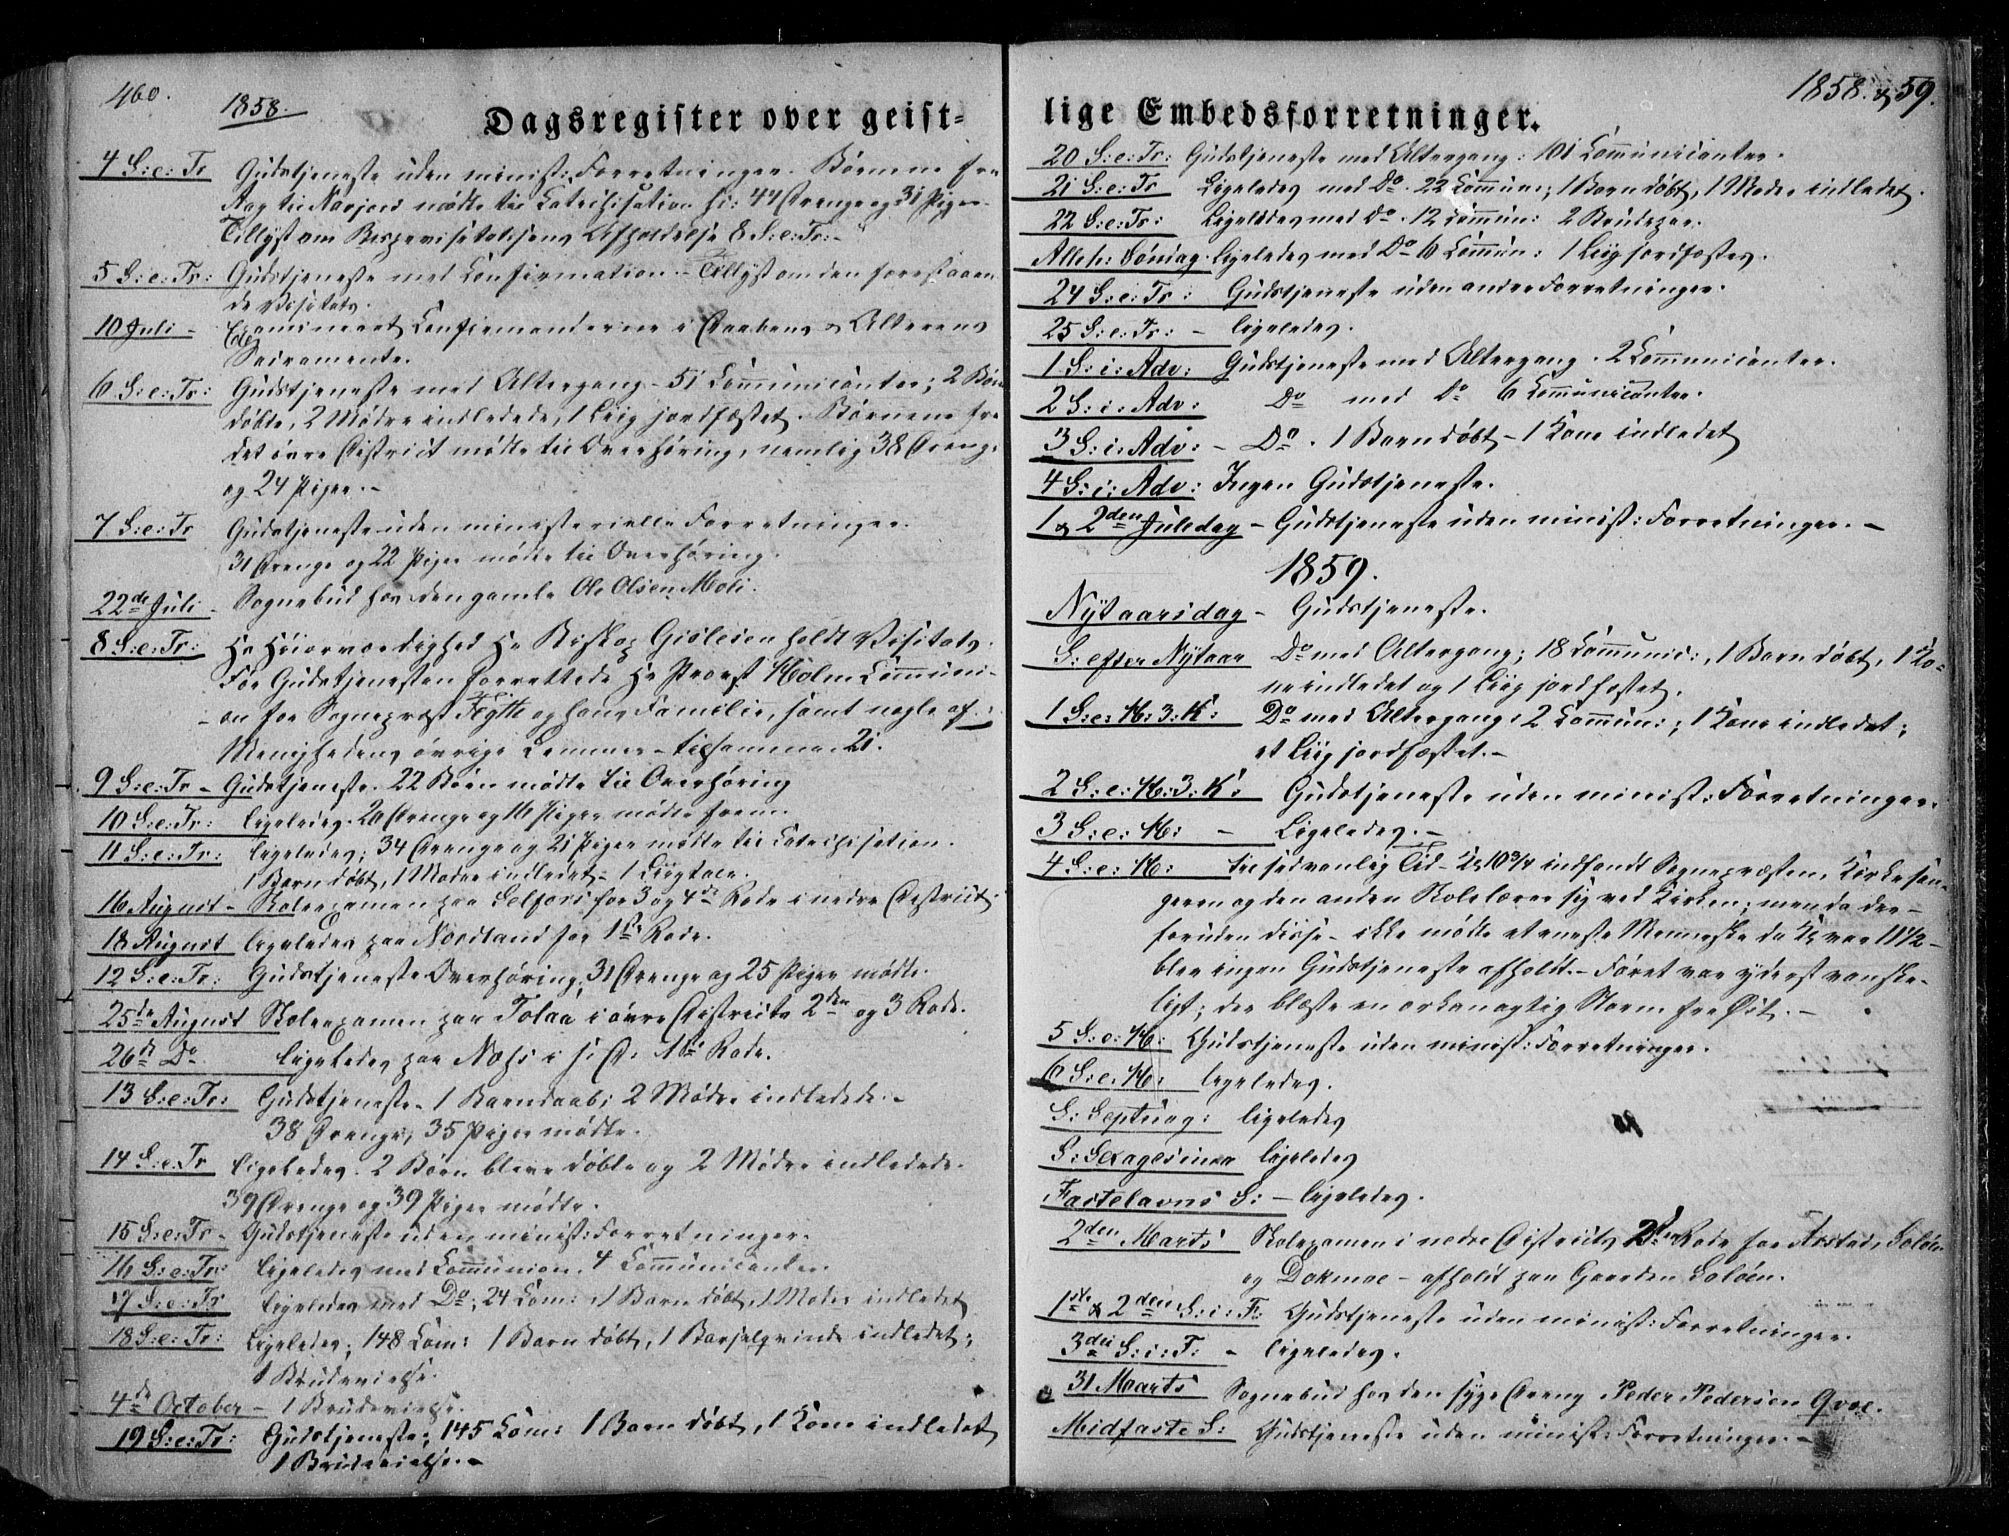 460.
1858.
Dagsregister over geist-
4 S: e: Tr Gudstjeneste uden minist: Forretninger. Børnene fra
til Navjord mødte til Catechisation h: 44 Drenge og 31 Piger.
Tillyst om Bispevisitatsens Afholdelse 8 S: e: Tr: -
5 S: e: Tr: Gudstjeneste med Confirmation - Tillyst om den forestaaen-
de Visitats.
10 Juli - Examineret Confirmanderne i Daabens & Alterens
Sacramente.
6 S: e: Tr: Gudstjeneste med Altergang - 51 Communicanter; 2 Børn
døbte, 2 Mødre indledede, 1 Liig jordfæstet. Børnene fra
det øvre District mødte til Overhøring, nemlig 38 Drenge
og 24 Piger. -
7 S: e: Tr Gudstjeneste uden ministerielle Forretninger.
31 Drenge og 22 Piger mødte til Overhøring.
22de Juli - Sognebud hos den gamle Ole Olsen Moli.
8 S: e: Tr: Hs Høiærværdighed Hr Biskop Gislesen holdt Visitats.
Før Gudstjenesten forrettede Hr Provst Holm Communi-
on for Sognepræst Fÿtte og hans Familie, samt nogle af
Menighedens øvrige Lemmer - tilsammen 21.
9 S: e: Tr - Gudstjeneste. 22 Børn mødte til Overhøring
10 S: e: Tr: Ligeledes. 20 Drenge og 16 Piger mødte frem.
11 S: e: Tr: Ligeledes; 34 Drenge og 21 Piger mødte til Catechisation.
1 Barn døbt, 1 Moder indledet - 1 Liigtale.
16 August - Skoleexamen paa Selfors for 3 og 4de Rode i nedre District.
18 August ligeledes paa Nordland for 1ste Rode.
12 S: e: Tr: Gudstjeneste Overhøring; 31 Drenge og 25 Piger mødte.
25de August Skoleexamen paa Tolaa i øvre Districts 2den og 3 Rode.
26de Do ligeledes paa Næss i s: D: 1ste Rode.
13 S: e: Tr: Gudstjeneste - 1 Barnedaab; 2 Mødre indledede. -
38 Drenge, 35 Piger mødte.
14 S: e: Tr Ligeledes. 2 Børn bleve døbte og 2 Mødre indledede.
39 Drenge og 39 Piger mødte.
15 S: e: Tr - Gudstjeneste uden minist: Forretninger.
16 S: e: Tr: Ligeledes med Communion. 4 Communicanter.
17 S: e: Tr Ligeledes med Do; 24 Com: 1 Barn døbt, 1 Moder indledet
18 S: e: Tr: Ligeledes; 148 Com: 1 Barn døbt, 1 Barselqvinde indledet;
1 Brudevielse.
4de October - 1 Brudevielse.
19 S: e: Tr: Gudstjeneste; 145 Com: 1 Barn døbt, 1 Kone indledet
1 Brudevielse. -
1858. & 59.
lige Embedsforretninger.
20 S: e: Tr: Gudstjeneste med Altergang: 101 Communicanter.
21 S: e: Tr Ligeledes med Do. 22 Commun; 1 Barn døbt, 1 Moder indledet.
22 S: e: Tr: Ligeledes med Do. 12 Commun: 2 Brudepar.
Alleh: Søndag. Ligeledes med Do 6 Commun: 1 Liig jordfæstes.
24 S: e: Tr: Gudstjeneste uden andre Forretninger.
25 S: e: Tr: - ligeledes.
1 S: i: Adv: Gudstjeneste med Altergang. 2 Communicanter.
2 S: i: Adv: Do med Do 6 Communicanter.
3 S: i: Adv: - Do. 1 Barn døbt - 1 Kone indledet
4 S: i: Adv: Ingen Gudstjeneste.
1 & 2den Juledag - Gudstjeneste uden minist: Forretninger. -
1859.
Nÿtaarsdag - Gudstjeneste.
S: efter Nÿtaar Do med Altergang; 18 Communic:, 1 Barn døbt, 1 Ko-
ne indledet og 1 Liig jordfæstet.
1 S: e: H: 3: K: Do med Altergang: 2 Commun:; 1 Kone indledet;
et Liig jordfæstet. -
2 S: e: H: 3: K: Gudstjeneste uden minist: Forretninger.
3 S: e: H: - Ligeledes. -
4 S: e: H: Til sedvanlig Tid - Kl 10 3/4 indfandt Sognepræsten, Kirkesan-
geren og den anden Skolelærer sig ved Kirken; men da der -
foruden disse - ikke mødte et eneste Menneske da Kl var 11 1/2 -
blev ingen Gudstjeneste afholdt. - Føret var yderst vanske-
ligt; der blæste en orkanagtig Storm fra Øst. -
5 S: e: H: Gudstjeneste uden minist: Forretninger.
6 S: e: H: ligeledes.
S: Septuag: ligeledes
S: Sexagesima ligeledes
Fastelavns S: - ligeledes.
2den Marts Skolexamen i nedre Districts 2den Rode for Arstad, Soløen
og Dokmoe - afholdt paa Gaarden Soløen.
1ste & 2den S: i: F: Gudstjeneste uden minist: Forretninger.
3die S: i: F: - ligeledes.
31 Marts Sognebud hos den syge Dreng Peder Pedersen Qvoe.
Midfaste S: Gudstjeneste uden minist: Forretninger. -